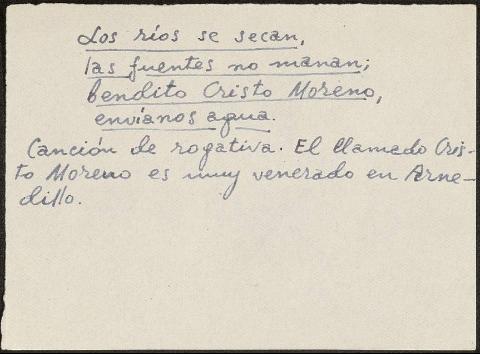 Los ríos se secan,
las fuentes no manan;
bendito Cristo Moreno,
envíanos agua.
Canción de rogativa. El llamado Cris-
to Moreno es muy venerado en Arne-
dillo.